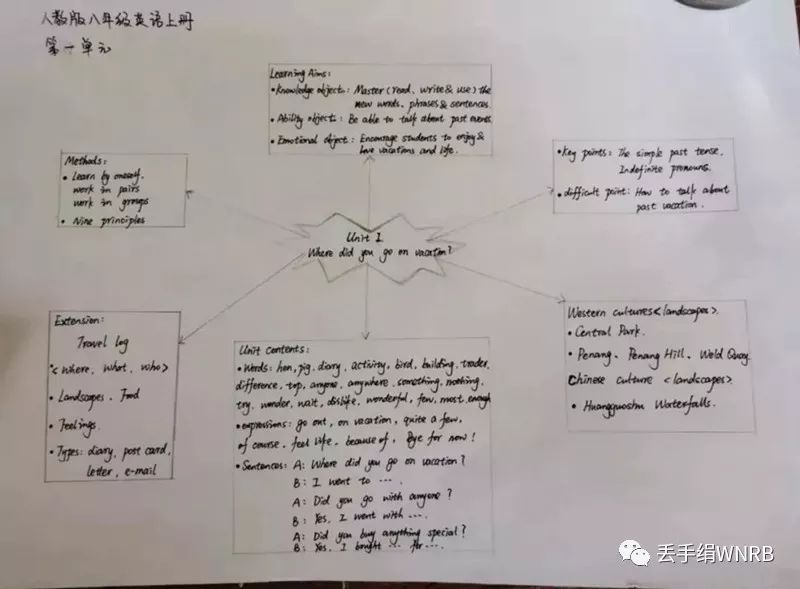 人教版八年级英语上册
第一单元
Learning Aims:
• Knowledge object: Master (read, write & use) the
new words, phrases & sentences.
• Ability object: Be able to talk about past events.
• Emotional object: Encourage students to enjoy &
love vacations and life.
Methods:
• Learn by oneself.
work in pairs
work in groups
• Nine principles
• Key points: The simple past tense.
Indefinite pronouns.
• difficult point: How to talk about
past vacation.
Unit 1
Where did you go on vacation?
Extension:
Travel log
• <where, what, who>
• Landscapes. Food
• Feelings.
• Types: diary, post card,
letter, e-mail
Unit Contents:
• Words: hen, pig, diary, activity, bird, building, trader,
difference, top, anyone, anywhere, something, nothing,
try, wonder, wait, dislike, wonderful, few, most, enough
• expressions: go out, on vacation, quite a few,
of course, feel like, because of, Bye for now!
• Sentences: A: Where did you go on vacation?
B: I went to ···.
A: Did you go with anyone?
B: Yes, I went with ···.
A: Did you buy anything special?
B: Yes, I bought ··· for ···.
Western cultures <landscapes>.
• Central Park.
• Penang, Penang Hill, Weld Quay.
Chinese culture <landscapes>.
• Huangguoshu Waterfalls.
丢手绢WNRB